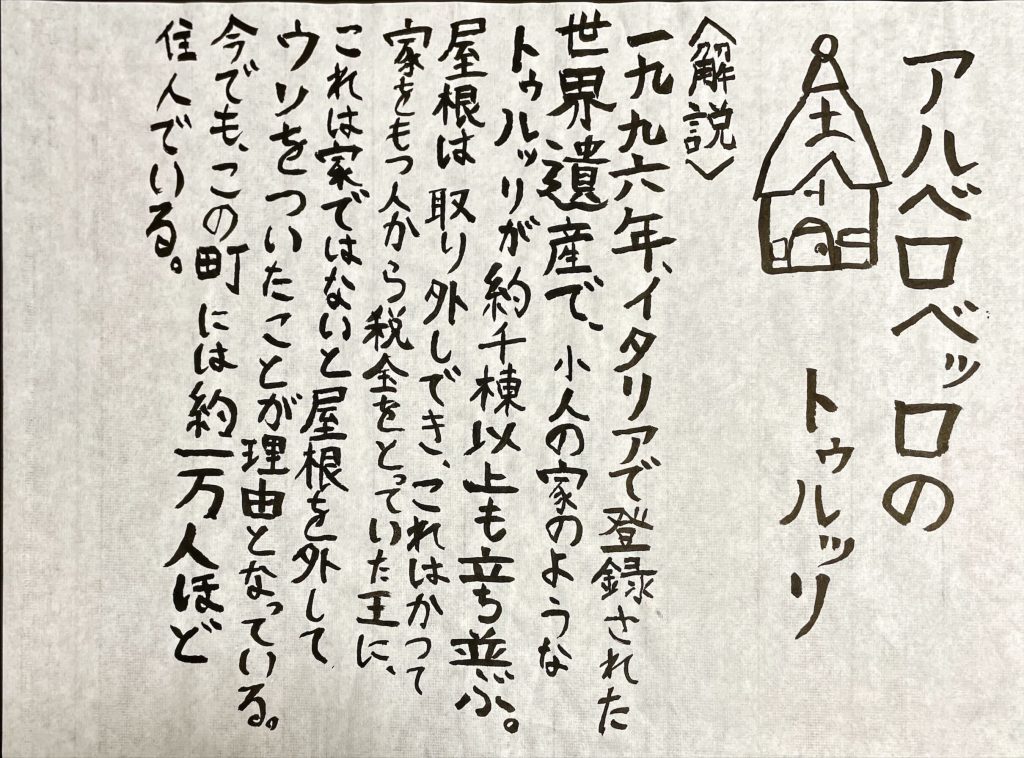 アルベロベッロの
トゥルッリ
〈解説〉
一九九六年、イタリアで登録された
世界遺産で、小人の家のような
トゥルッリが約千棟以上も立ち並ぶ。
屋根は取り外しでき、これはかつて
家をもつ人から税金をとっていた王に、
これは家ではないと屋根を外して
ウソをついたことが理由となっている。
今でも、この町には約一万人ほど
住人でいる。